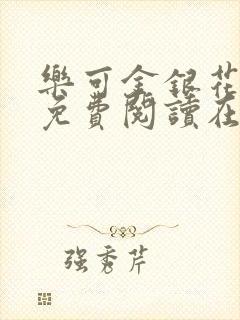 樂可金銀花
免費閱讀在
强秀芹